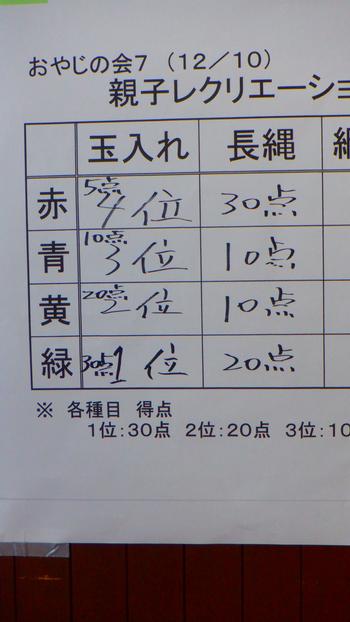 おやじの会7 （12／10）
親子レクリエーショ
玉入れ 長縄
赤 5点 4位 30点
青 10点 3位 10点
黄 20点 2位 10点
緑 30点 1位 20点
※ 各種目 得点
1位:30点 2位:20点 3位:10